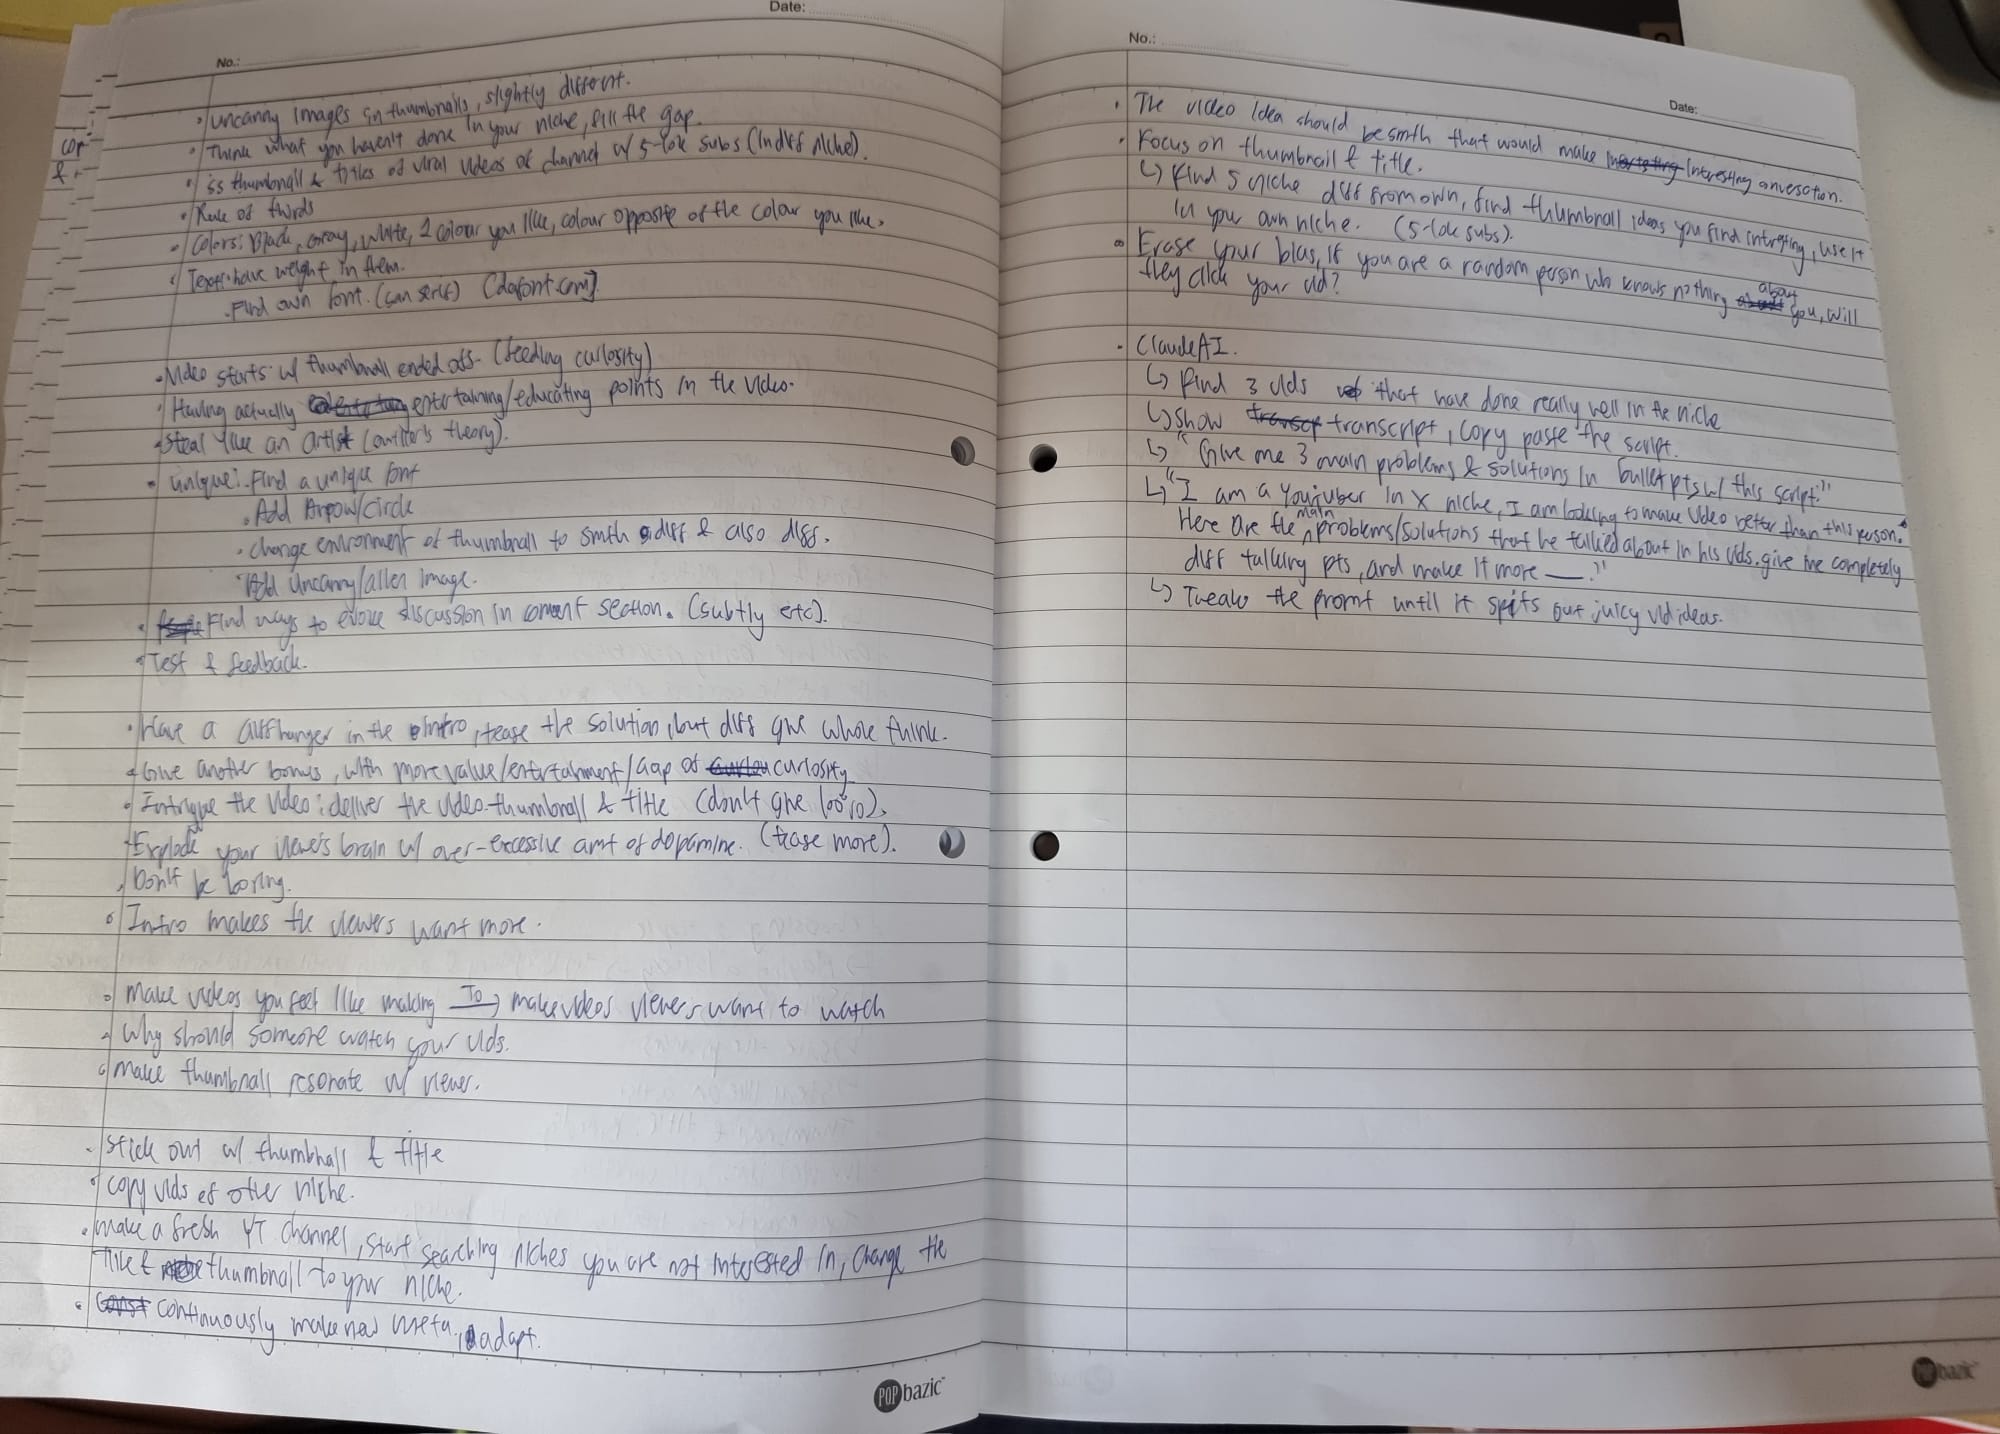 Date:
No.:
• Uncanny images in thumbnails, slightly different.
• Think what you haven't done in your niche, fill the gap.
• ss thumbnail & titles of viral videos of channel w/ 5-10k subs (in diff niche).
• Rule of thirds
• Colors: Black, Gray, White, 1 colour you like, colour opposite of the colour you like.
• Text: have weight in them.
• Find own font. (san serif) (dafont.com)
• Video starts w/ thumbnail ended off. (feeding curiosity)
• Having actually entertaining/educating points in the video.
• Steal like an artist ( theory).
• Unique: Find a unique font
• Add Arrow/Circle
• change environment of thumbnail to smth diff & also diff.
• Add Uncanny/alien image.
• Find ways to evoke discussion in coment section. (subtly etc).
• Test & feedback.
• Have a cliffhanger in the intro, tease the solution, but diff give whole think.
• Give another bonus, with more value/entertainment/Gap of curiosity
• Intrigue the video: deliver the video thumbnail & title (don't give 100%).
• Explode your viewer's brain w/ over-excessive amt of dopamine. (tease more).
• Don't be boring.
• Intro makes the viewers want more.
• make videos you feel like making To → make videos viewers want to watch
• Why should someone watch your vids.
• make thumbnail resonate w/ viewer.
• Stick out w/ thumbnail & title
• copy vids of other niche.
• make a fresh YT channel, start searching niches you are not interested in, change the
title & thumbnail to your niche.
• continuously make new meta, adapt.
POP bazic
cop
&
No.:
Date:
• The video idea should be smth that would make interesting conversation.
• Focus on thumbnail & title.
↳ Find 5 niche diff from own, find thumbnail ideas you find interesting, use it
in your own niche. (5-10k subs).
• Erase your bias, if you are a random person who knows nothing about you, will
they click your vid?
• Claude AI.
↳ Find 3 vids that have done really well in the niche
↳ show transcript, copy paste the script.
↳ "Give me 3 main problems & solutions in bullet pts w/ this script."
↳ "I am a Youtuber in X niche, I am looking to make video better than this person.
Here are the main problems/solutions that he talked about in his vids. give me completely
diff talking pts, and make it more ___."
↳ Tweak the promt until it spits out juicy vid ideas.
POP bazic